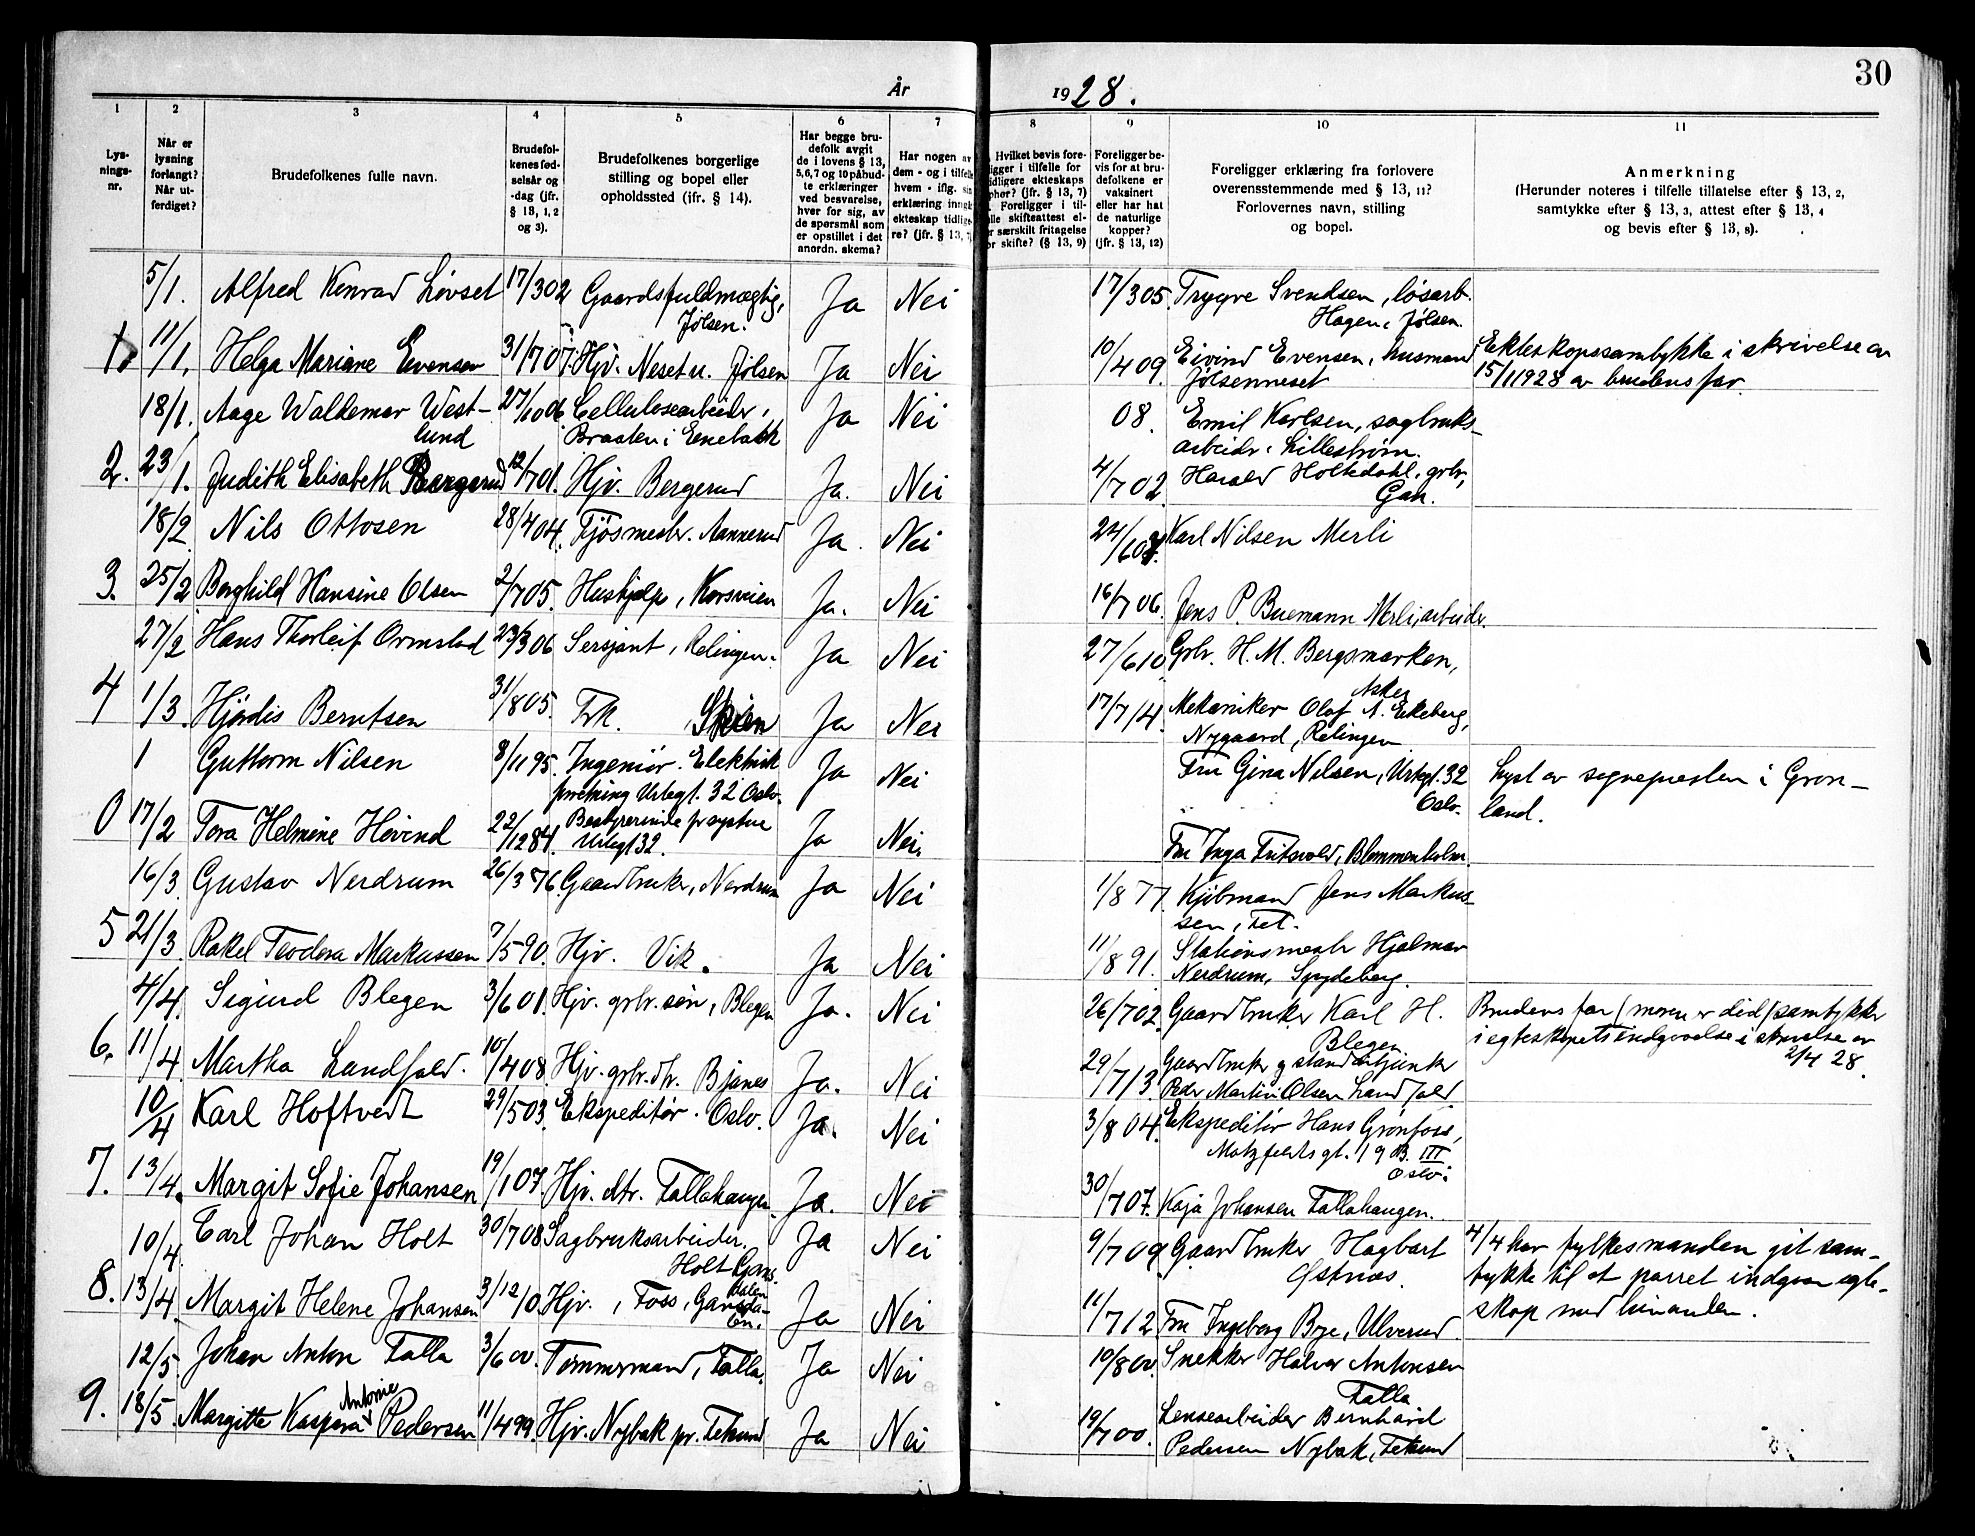 30
År 1928.
1 2 3 4 5 6 7 8 9 10 11
Lys-
nings-
nr.
Når er
lysning
forlangt?
Når ut-
ferdiget?
Brudefolkenes fulle navn.
Brudefol-
kenes fød-
selsår og
-dag (jfr.
§ 13, 1, 2
og 3).
Brudefolkenes borgerlige
stilling og bopel eller
opholdssted (ifr. § 14).
Har begge bru-
defolk avgit
de i lovens § 13,
5,6,7 og 10 påbud-
te erklæringer
ved besvarelse,
hver for sig, av
de spørsmål som
er opstillet i det
anordn. skema?
Har nogen av
dem - og i tilfelle
hvem - iflg. sin
erklæring inngå
ekteskap tidlige-
re? (jfr. § 13, 7)
Hvilket bevis fore-
ligger i tilfelle for
idligere ekteskaps
phør? (jfr. § 13, 7)
Foreligger i til-
lle skifteattest el-
r særskilt fritagelse
or skifte? (§ 13, 9)
Foreligger be-
vis for at bru-
defolkene er
vaksinert
eller har hat
de naturlige
kopper?
(jfr. § 13, 12)
Foreligger erklæring fra forlovere
overensstemmende med § 13, 11?
Forlovernes navn, stilling
og bopel.
Anmerkning
(Herunder noteres i tilfelle tillatelse efter § 13, 2,
samtykke efter § 13, 3, attest efter § 13, 4
og bevis efter § 13, 8).
5/1. Alfred Konrad Løvset 17/3 02 Gaardsfuldmægtig, Ja Nei 17/3 05. Trygve Svendsen, løsarb.
Jølsen. Hagen, Jølsen.
1. 11/1. Helga Mariane Evensen 31/7 07. Hjv. Neset u. Jølsen Ja Nei 10/4 09. Eivind Evensen, husmand Ekteskapssamtykke i skrivelse av
Jølsenneset 15/1 1928 av brudens far.
18/1. Aage Waldemar West- 27/10 06 Cellulosearbeider, Ja Nei 08. Emil Karlsen, sagbruks-
lund Braaten i Enebakk arbeider, Lillestrøm.
2. 23/1. Judith Elisabeth Bergerud 12/7 01. Hjv. Bergerud Ja. Nei 4/7 02 Harald Holtedahl, grbr,
Gan.
18/2 Nils Ottosen 28/4 04. Fjøsmestr. Aannerud Ja. Nei 24/6 Karl Nilsen Merli
3. 25/2 Borghild Hansine Olsen 2/7 05. Hushjelp, Korsveien Ja. Nei 16/7 06. Jens P. Buemann Merli, arbeider.
27/2 Hans Thorleif Ormstad 23/3 06 Sersjant, Relingen. Ja Nei 27/6 10 Grbr. H. M. Bergsmarken,
Asker
4 1/3. Hjørdis Berntsen 31/8 05. Frk. Skien Ja Nei 17/7 14. Mekaniker Olaf A. Ekeberg,
Nygaard, Relingen
1 Guttorm Nilsen 8/11 95. Ingeniør. Elektrisk Ja Nei Fru Gina Nilsen, Urtegt. 32 Lyst av sogneprsten i Grøn-
forretning Urtegt. 32 Oslo. Oslo. land.
0 17/2 Tora Helmine Høvind 22/12 84. Bestyrerinde Ja Nei. Fru Inga Fritsvold, Blommenholm.
Urtegt 32.
16/3 Gustav Nerdrum 26/3 76. Gaardbruker, Nerdrum Ja Nei 1/8 77. Kjøbmand Jens Markus-
sen, Fet.
5 21/3 Rakel Teodora Markussen 7/5 90. Hjv. Vik. Ja Nei 11/8 91. Stationsmestr Hjalmar
Nerdrum, Spydeberg.
4/4. Sigurd Blegen 3/6 01. Hjv. grbr. søn, Blegen Ja. Nei 26/7 02 Gaardbruker Karl H. Brudens far (moren er død) samtykker
Blegen i egteskapets indgaaelse i skrivelse av
2/4 28.
6. 11/4 Martha Landfald. 10/4 08. Hjv. grbr. dtr. Bjanes Ja. Nei 29/7 13. Gaardbruker og
Peder Martin Olsen Landfald
10/4 Karl Hoftvedt 29/5 03. Ekspeditør. Oslo. Ja. Nei 3/8 04. Ekspeditør Hans Grønfoss,
Motzfeldts gt. 19 B. III
Oslo.
7. 13/4. Margit Sofie Johansen 19/1 07. Hjv. dtr. Fallahaugen. Ja. Nei 30/7 07. Kaja Johansen Fallahaugen.
10/4. Carl Johan Holt 30/7 08 Sagbruksarbeider. Ja Nei 9/7 09 Gaardbruker Hagbart 4/4 har fylkesmanden git sam-
Holt Gans. Østnæs. tykke til at parret indgaar egte-
skap med hinanden.
8. 13/4. Margit Helene Johansen 3/12 10. Hjv., Foss, Gansda-
len. Ja Nei 11/7 12 Fru Ingeborg Bye, Ulverud.
12/5. Johan Anton Falla 3/6 00. Tømmermand, Falla. Ja Nei 10/8 00. Snekker Halvor Antonsen
Falla
9. 18/5. Margitte Kaspara Antonie Pedersen 11/4 99. Hjv. Nybak pr. Fetsund Ja Nei 19/7 00. Lensearbeider Bernhard
Pedersen Nybak, Fetsund